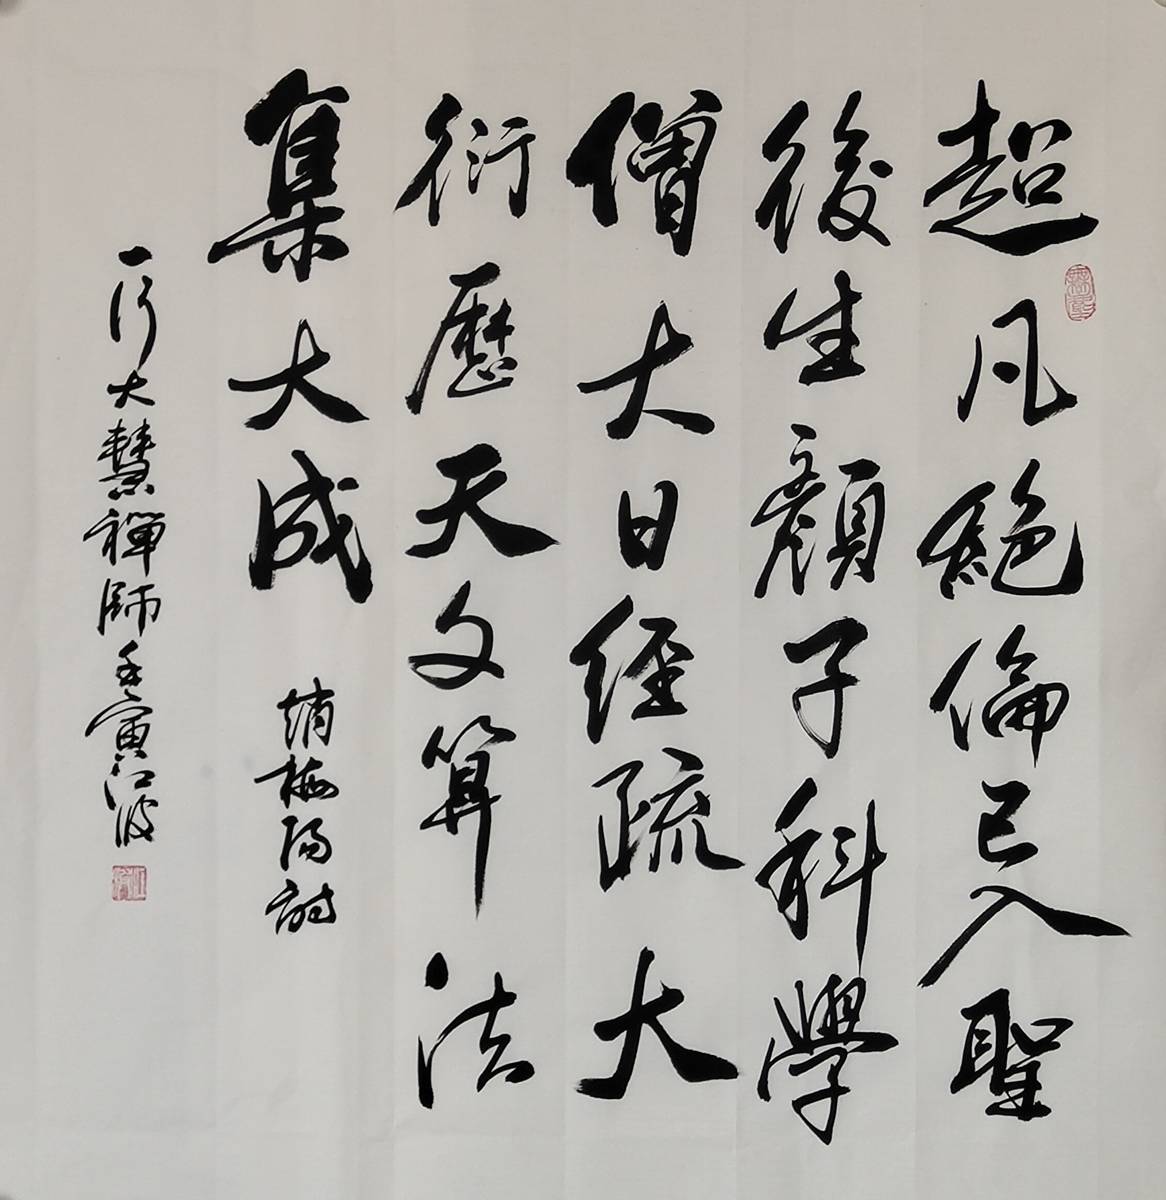 超凡絕倫已入聖
後生顏子科學
僧大日經疏大
衍歷天文算法
集大成
趙梅陽詩
一行大慧禪師壬寅江波